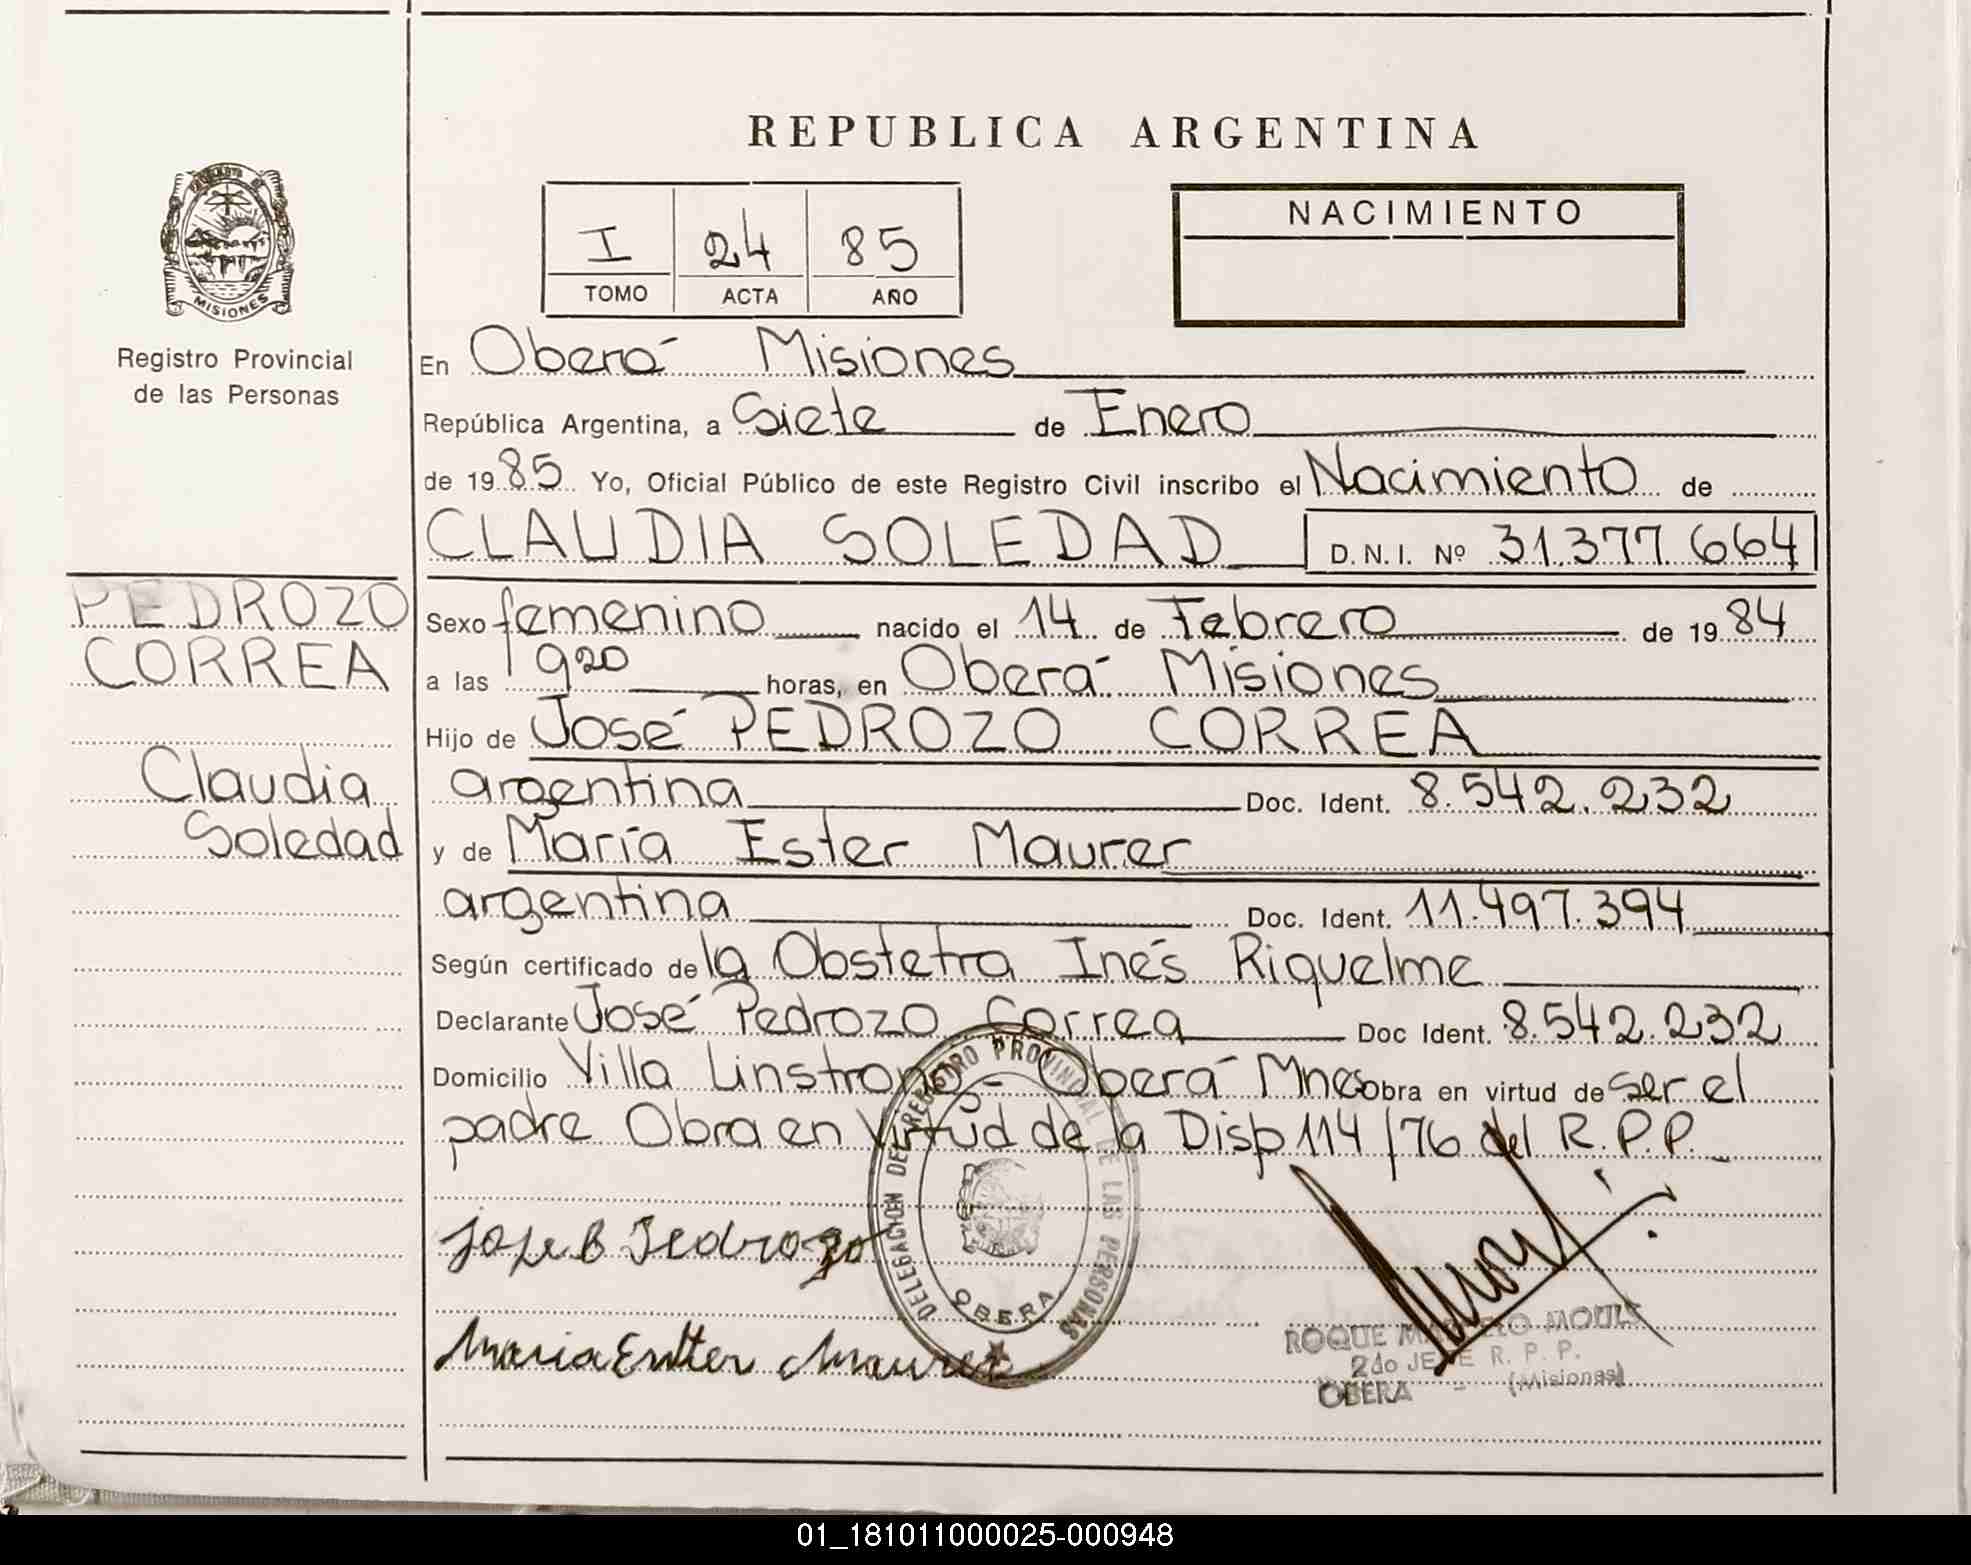 REPUBLICA ARGENTINA
I 24 85
TOMO ACTA AÑO
NACIMIENTO
MISIONES
Registro Provincial
de las Personas
En Oberá Misiones
República Argentina, a Siete de Enero
de 1985 Yo, Oficial Público de este Registro Civil inscribo el Nacimiento de
CLAUDIA SOLEDAD D.N.I. Nº 31.377.664
PEDROZO
CORREA
Claudia
Soledad
Sexo femenino nacido el 14 de Febrero de 1984
a las 920 horas, en Oberá Misiones
Hijo de José PEDROZO CORREA
argentina Doc. Ident. 8.542.232
y de María Ester Maurer
argentina Doc. Ident. 11.497.394
Según certificado de la Obstetra Inés Riquelme
Declarante José Pedrozo Correa Doc Ident. 8.542.232
Domicilio Villa Linstrong - Oberá Mnes obra en virtud de ser el
padre Obra en Virtud de la Disp 114/76 del R.P.P.
DELEGACION DEL REGISTRO PROVINCIAL DE LAS PERSONAS
OBERA
Jose B Pedrozo
Maria Ester Maurer
ROQUE MOULS
2do JEFE R. P. P.
OBERA - (Misiones)
01_181011000025-000948